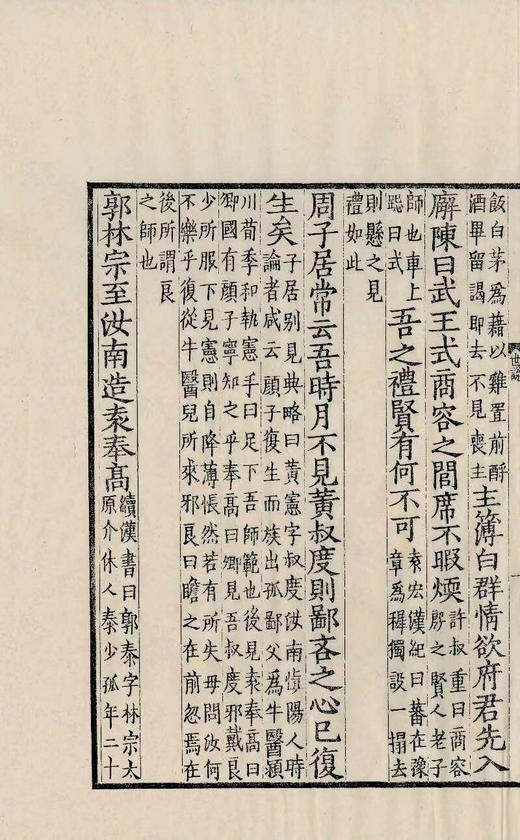 飯白茅為藉以雞置前酹
酒畢留謁即去不見喪主
主簿白群情欲府君先入
廨陳曰武王式商容之閭席不暇煗
許叔重曰商容
殷之賢人老子
師也車上
跽曰式
吾之禮賢有何不可
袁宏漢紀曰蕃在豫
章為穉獨設一榻去
則懸之見
禮如此
周子居常云吾時月不見黃叔度則鄙吝之心已復
生矣
子居別見典略曰黃憲字叔度汝南慎陽人時
論者咸云顏子復生而族出孤鄙父為牛醫潁
川荀季和執憲手曰足下吾師範也後見袁奉高曰
卿國有顏子寧知之乎奉高曰卿見吾叔度邪戴良
少所服下見憲則自降薄悵然若有所失母問汝何
不樂乎復從牛醫兒所來邪良曰瞻之在前忽焉在
後所謂良
之師也
郭林宗至汝南造袁奉高
續漢書曰郭泰字林宗太
原介休人泰少孤年二十
世說